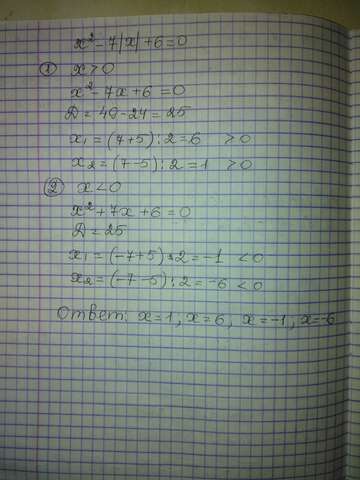 x² - 7|x| + 6 = 0
① x > 0
x² - 7x + 6 = 0
D = 49 - 24 = 25
x₁ = (7+5) : 2 = 6 > 0
x₂ = (7-5) : 2 = 1 > 0
② x < 0
x² + 7x + 6 = 0
D = 25
x₁ = (-7+5) : 2 = -1 < 0
x₂ = (-7-5) : 2 = -6 < 0
Ответ: x = 1, x = 6, x = -1, x = -6